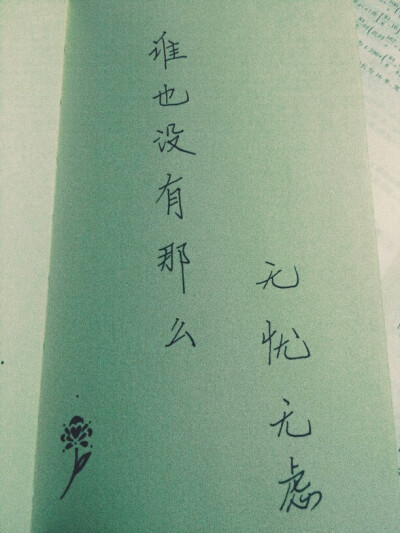 谁也没有那么
无忧无虑